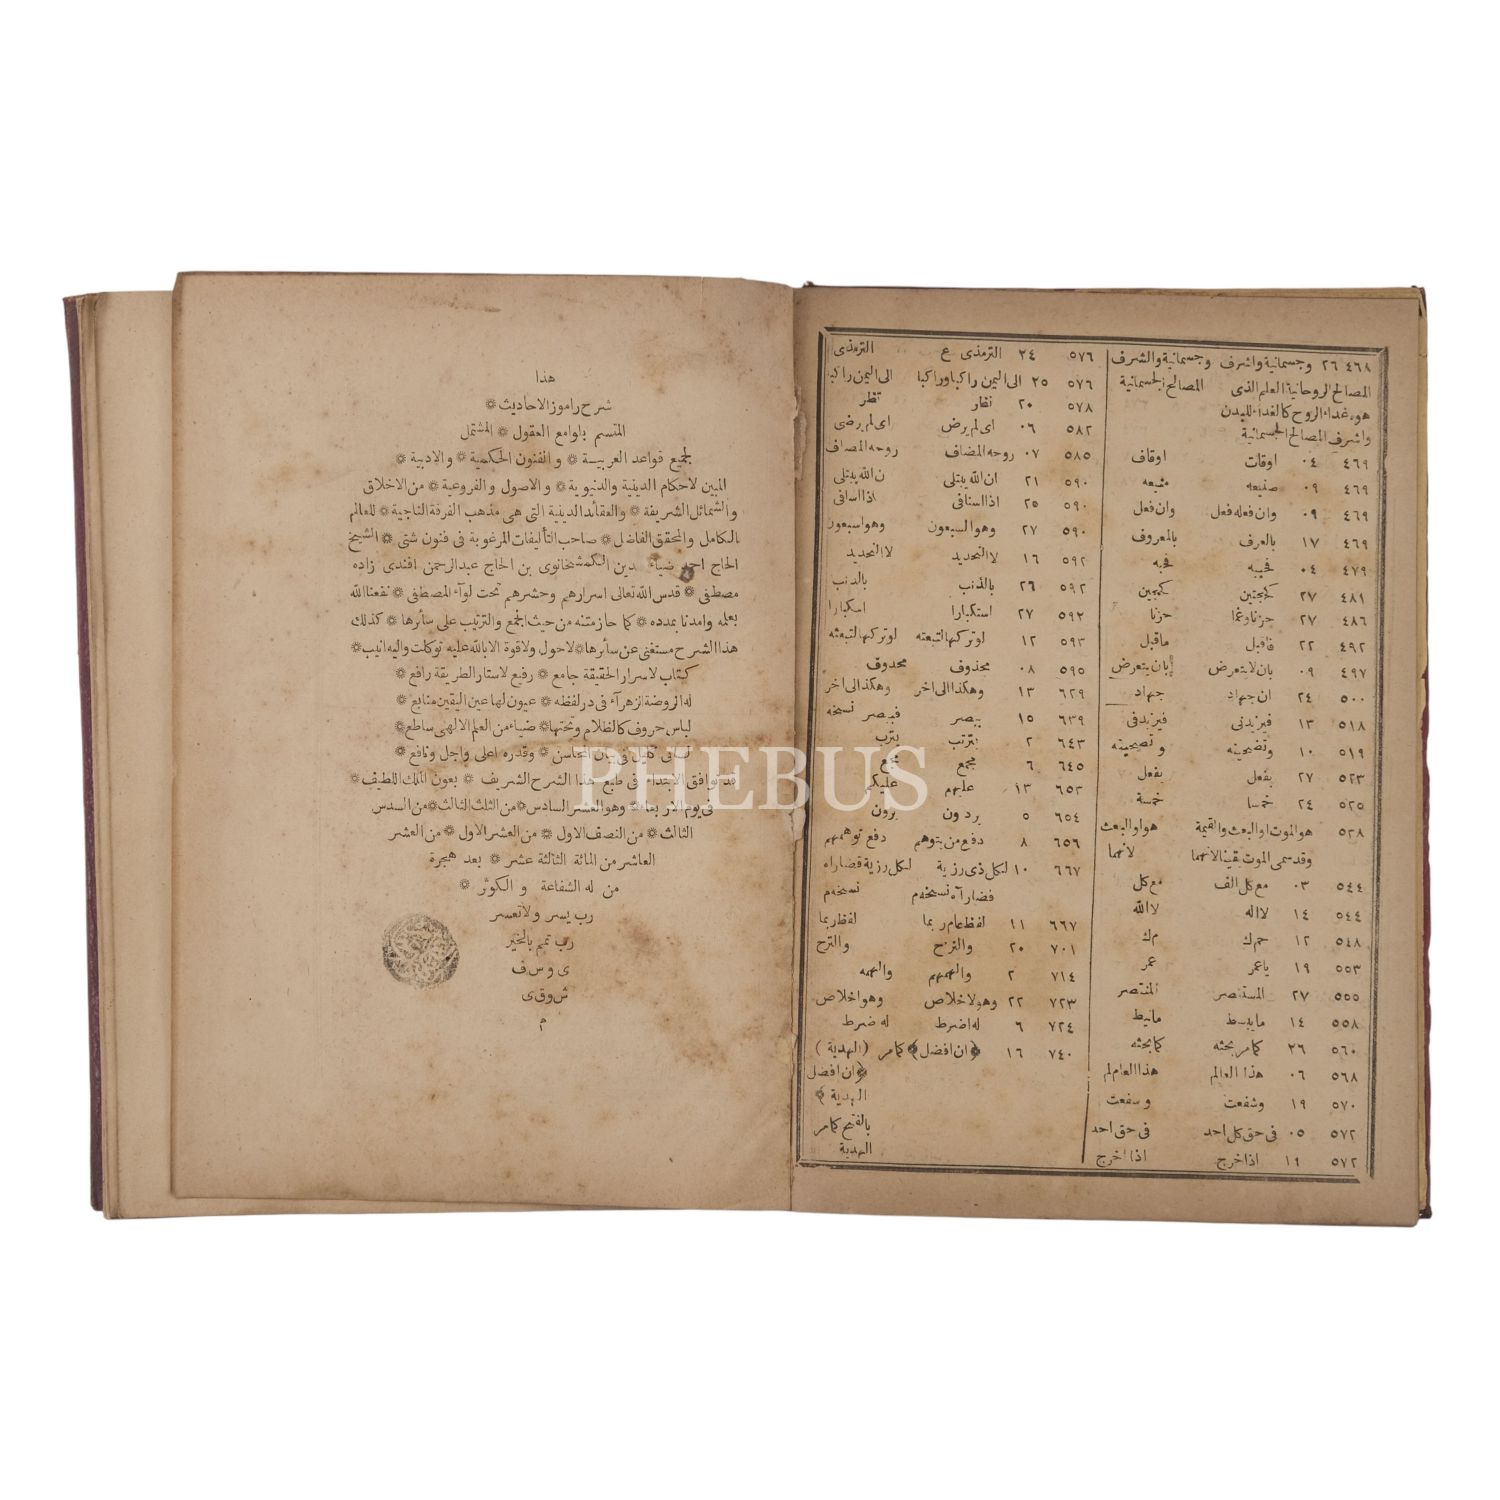 ٤٦٨ ٢٦ وجسمانية واشرف وجسمانية والشرف
المصالح الروحانية العلم الذى المصالح الجسمانية
هو غداء الروح كالغداء للبدن
واشرف المصالح الجسمانية
٤٦٩ ٠٤ اوقات اوقاف
٤٦٩ ٠٩ صنيعه
٤٦٩ ٠٩ وان فعله فعل وان فعل
٤٦٩ ١٧ بالعرف بالمعروف
٤٧٩ ٠٤
٤٨١ ٢٧
٤٨٦ ٢٧ حزنا وغما حزنا
٤٩٢ ٢٢ فاقبل ماقبل
٤٩٧ ٠٩ بان لايتعرض بان يتعرض
٥٠٠ ٢٤ ان جهاد جهاد
٥١٨ ١٣ فيزيدنى فيزيدفى
٥١٩ ١٠
٥٢٣ ٢٧ بفعل يفعل
٥٢٥ ٢٤ خمسا خمسة
٥٢٨ هو الموت او البعث والقيمة هو او البعث
وقد سمى الموت يقينا لانهما لانهما
٥٤٤ ٠٣ مع كل الف مع كل
٥٤٤ ١٤ لا اله لا الله
٥٤٨ ١٢
٥٥٣ ١٩ ياعمر عمر
٥٥٥ ٢٧ المستنصر المنتصر
٥٥٨ ١٤ مايبسط مانيط
٥٦٠ ٢٦ كمامر بحثه كمابحثه
٥٦٨ ٠٦ هذا العالم هذا العام لم
٥٧٠ ١٩ وشفعت وسفعت
٥٧٢ ٠٥ فى حق كل احد فى حق احد
٥٧٢ ١٩ اذا خرج اذا اخرج
٥٧٦ ٢٤ الترمذى ع الترمذى
٥٧٦ ٢٥ الى اليمن راكبا وراكبا الى اليمن راكبا
٥٧٨ ٢٠ نظار تظر
٥٨٢ ٠٦ اى لم يرض اى لم يرضى
٥٨٥ ٠٧ روحه المضاف روحه المصاف
٥٩٠ ٢١ ان الله يبتلى ن الله يبتلى
٥٩٠ ٢٥ اذا اسنافى اذا اسافى
٥٩٠ ٢٧ وهو السبعون وهو اسبعون
٥٩٢ ١٦ لا التحديد لا التحديد
٥٩٢ ٢٦ بالذنب بالدنب
٥٩٢ ٢٧ استكبارا اسكبارا
٥٩٣ ١٢ اوتركها لتبعته اوتركها التبعثه
٥٩٥ ٠٨ محذوف محدوف
٦٢٩ ١٣ وهكذا الى اخر وهكذا الى اخر
٦٣٩ ١٥ يبصر فيبصر نسخه
٦٤٣ ٢ يترتب يترب
٦٤٥ ٦ مجمع
٦٥٣ ١٣ عليهم عليكم
٦٥٤ ٥ يردون برون
٦٥٦ ٨ دفع من يتوهم دفع توهمهم
٦٦٧ ١٠ لكل ذى رزية لكل رزية قضاراه
قضاراه نسخه م نسخه م
٦٦٧ ١١ لفظ عام ربما لفظ ربما
٧٠١ ٢٠ والترح والترح
٧١٤ ٢ والهمهم والهمه
٧٢٣ ٢٢ وهو لاخلاص وهو اخلاص
٧٢٤ ٦ له اضرط له ضرط
٧٤٠ ١٦ ﴿ان افضل﴾ كمامر (الهدية)
﴿ان افضل
الهدية﴾
بالفتح كمامر
الهدية
هذا
شرح راموز الاحاديث ❋
المتسم بلوامع العقول ❋ المشتمل
لجميع قواعد العربية ❋ و الفنون الحكمية ❋ والادبية ❋
المبين لاحكام الدينية والدنيوية ❋ والاصول والفروعية ❋ من الاخلاق
والشمائل الشريفة ❋ والعقائد الدينية التى هى مذهب الفرقة الناجية ❋ للعالم
الكامل والمحقق الفاضل ❋ صاحب التأليفات المرغوبة فى فنون شتى ❋ الشيخ
الحاج احمد ضياء الدين الكمشخانوى بن الحاج عبدالرحمن افندى زاده
مصطفى ❋ قدس الله تعالى اسرارهم وحشرهم تحت لواء المصطفى ❋ نفعنا الله
بعلمه وامدنا بمدده ❋ كما حاز متنه من حيث الجمع والترتيب على سائرها ❋ كذلك
هذا الشرح مستغنى عن سائرها ❋ لاحول ولاقوة الا بالله عليه توكلت واليه انيب ❋
كتاب لاسرار الحقيقة جامع ❋ رفيع لاستار الطريقة رافع ❋
له الروضة الزهراء فى در لفظه ❋ عيون لها عين اليقين منابع ❋
لباس حروف كالظلام وتحتها ❋ ضياء من العلم الالهى ساطع ❋
لسانى كليل فى بيان المحاسن ❋ وقدره اعلى واجل ونافع ❋
قد توافق الابتداء فى طبع هذا الشرح الشريف ❋ بعون الملك اللطيف ❋
فى يوم الاربعا ❋ وهو العشر السادس ❋ من الثلث الثالث ❋ من السدس
الثالث ❋ من النصف الاول ❋ من العشر الاول ❋ من العشر
العاشر من المائة الثالثة عشر ❋ بعد هجرة
من له الشفاعة و الكوثر ❋
رب يسر ولا تعسر
رب تمم بالخير
ى وس ف
ش وق ى
م
PHEBUS